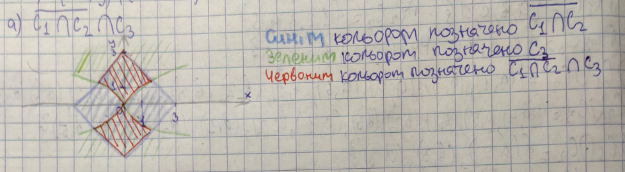 а) C₁∩C₂ ∩C₃
Синім кольором позначено C₁∩C₂
Зеленим кольором позначено C₃
Червоним кольором позначено C₁∩C₂ ∩C₃
x
3